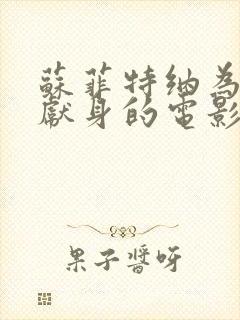 蘇菲特納為
獻身的電影
果子醬呀